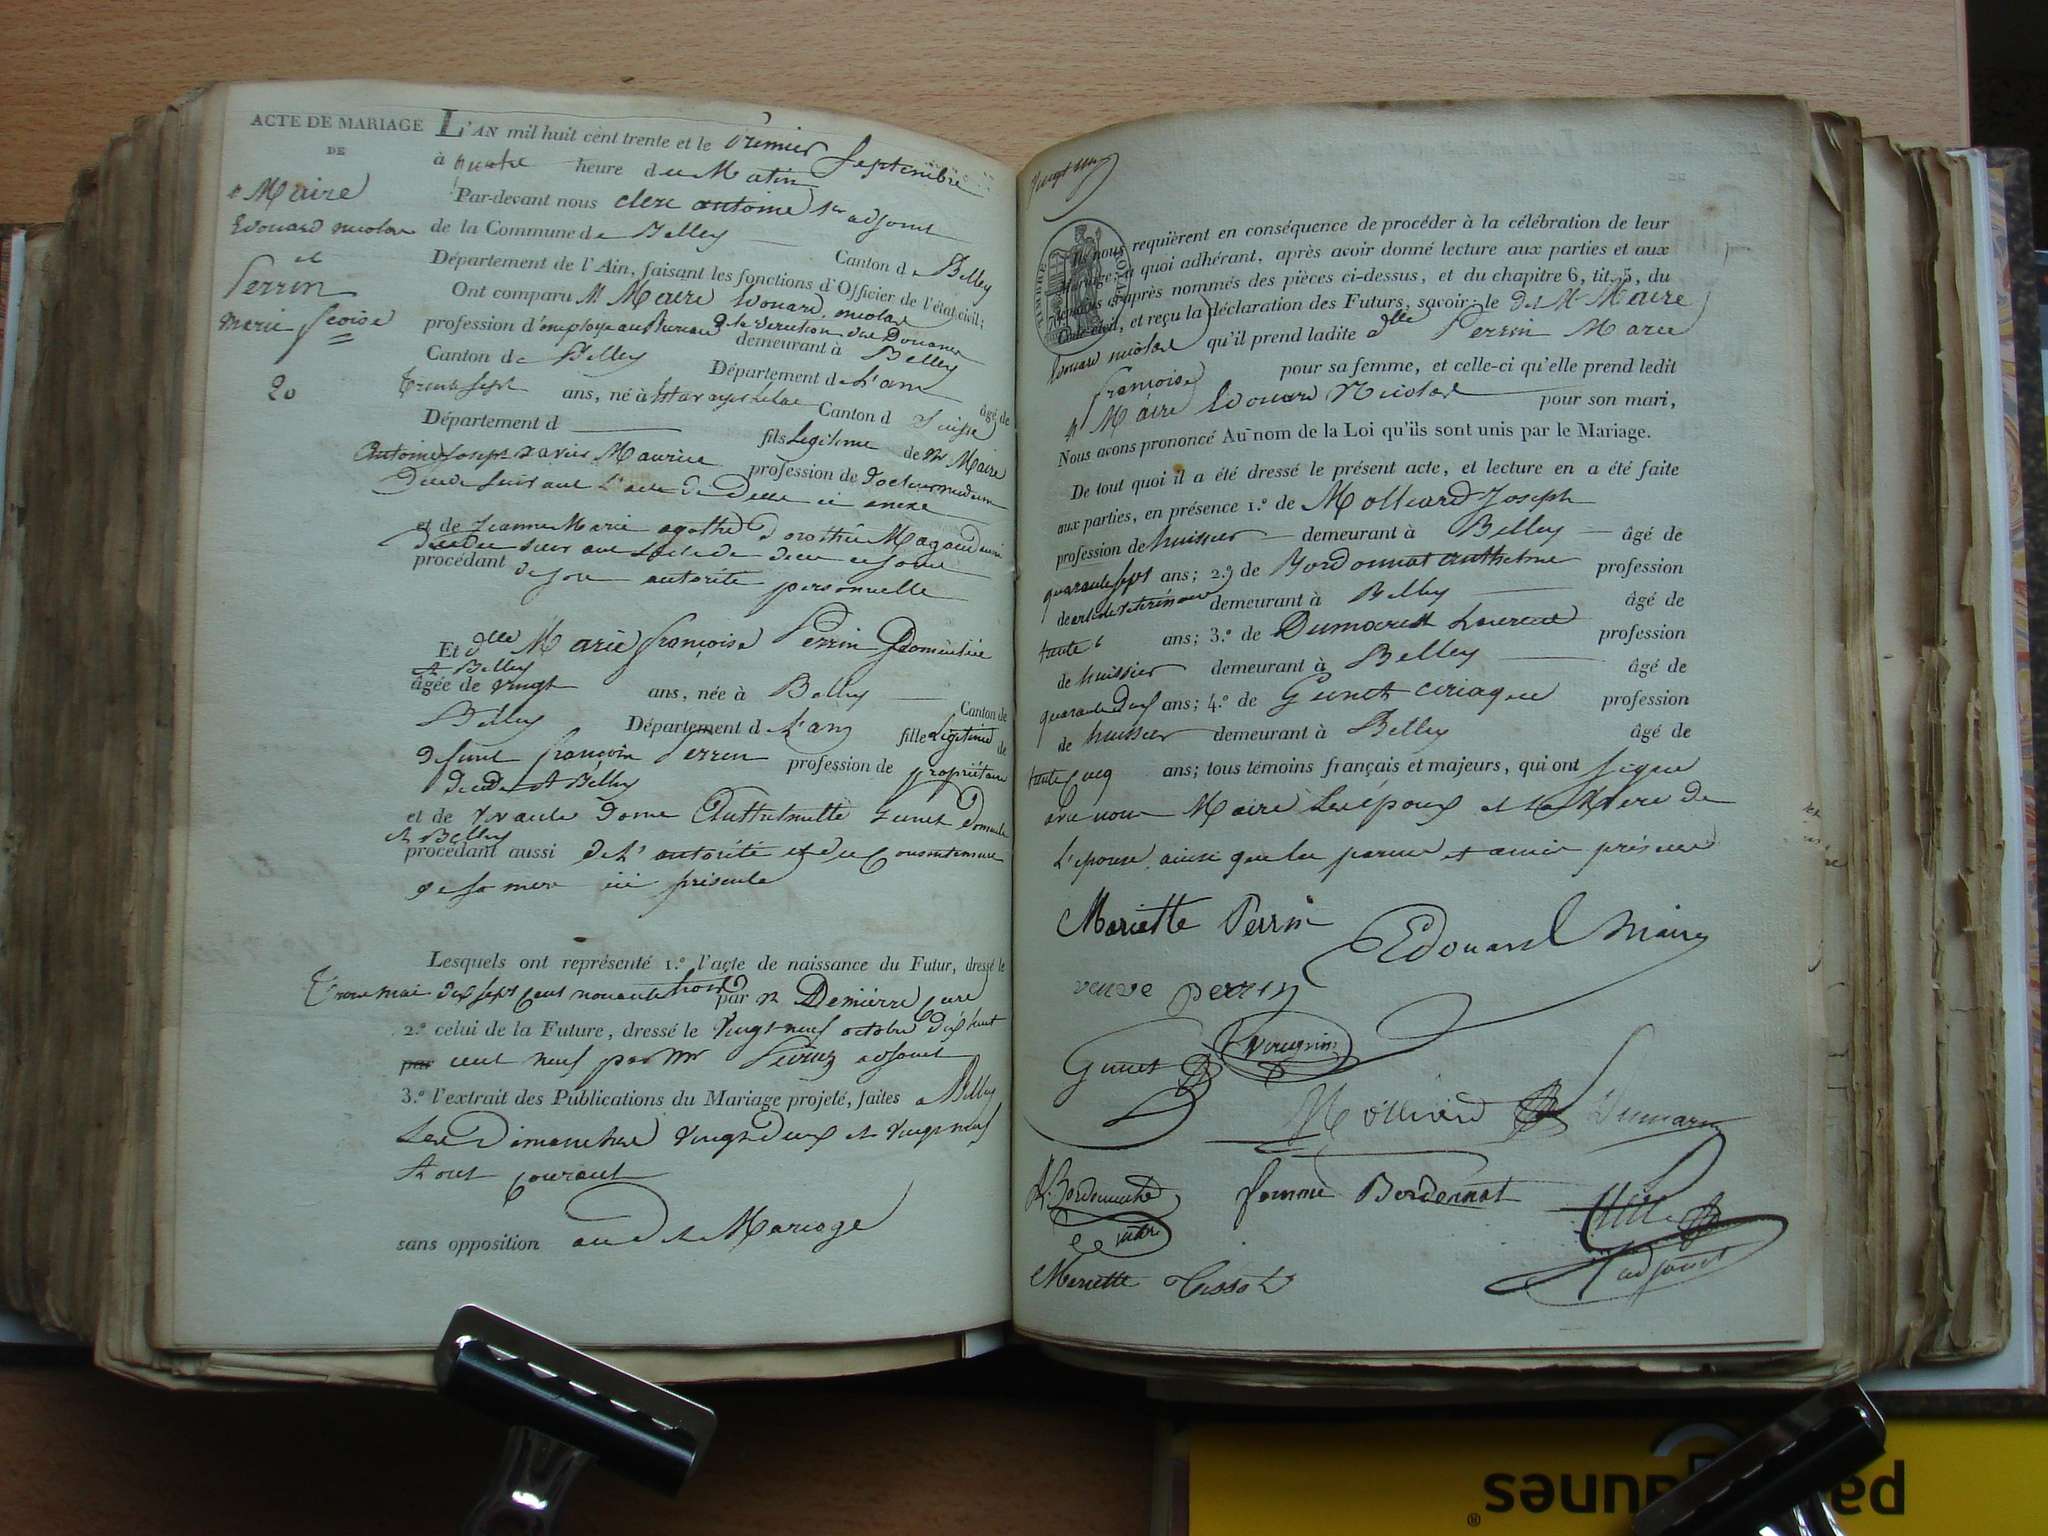 ACTE DE MARIAGE
DE
Maire
Edouard nicolas
et
Perrin
marie fcoise
20
L'AN mil huit cent trente et le Premier Septembre
à heure du Matin
Par-devant nous clerc antoine 1er adjoint
de la Commune de Belley Canton de Belley
Département de l'Ain, faisant les fonctions d'Officier de l'état civil;
Ont comparu M Maire Edouard nicolas
profession d'employé au Bureau de la Direction des Douanes
demeurant à Belley
Canton de Belley Département de L'ain âgé de
trente sept ans, né à Canton d Suisse
Département d fils Legitime de Mr Maire
Antoine Joseph Xavier Maurice profession de docteur medecin
Décédé suivant l'acte de Décé ci anexé
et de Jeanne Marie agathe Dorothée
décédée suivant L'acte de décé
procédant de son autorité personnelle
Et dlle Marie françoise Perrin Domiciliée
A Belley
âgée de vingt ans, née à Belley Canton de
Belley Département d L'ain fille Legitime de
defunt françois Perrin profession de propriétaire
Décédé A Belley
et de Dame Domiciliée
A Belley
procédant aussi de L'autorité et du Consentement
de sa mere ici présente
Lesquels ont représenté 1.º l'acte de naissance du Futur, dressé le
Trois mai dix sept cent nonante trois par Mr Demierre curé
2.º celui de la Future, dressé le vingt neuf octobre dix huit
par cent neuf par Mr adjoint
3.º l'extrait des Publications du Mariage projeté, faites a Belley
Les Dimanches vingt Deux et vingt neuf
Aout Courant
sans opposition au dit Mariage
vingt un
TIMBRE ROYAL
Ils nous requièrent en conséquence de procéder à la célébration de leur
Mariage; à quoi adhérant, après avoir donné lecture aux parties et aux
témoins ci-après nommés des pièces ci-dessus, et du chapitre 6, tit. 5, du
Code civil, et reçu la déclaration des Futurs, savoir: le dit Mr Maire
Edouard nicolas qu'il prend ladite dlle Perrin Marie
françoise pour sa femme, et celle-ci qu'elle prend ledit
Mr Maire Edouard Nicolas pour son mari,
Nous avons prononcé Au nom de la Loi qu'ils sont unis par le Mariage.
De tout quoi il a été dressé le présent acte, et lecture en a été faite
aux parties, en présence 1.º de Molliard Joseph
profession de huissier demeurant à Belley âgé de
quarante sept ans; 2.º de Bordonnat anthelme profession
de artiste vétérinaire demeurant à Belley âgé de
trente 6 ans; 3.º de Dumarest Laurent profession
de huissier demeurant à Belley âgé de
quarante deux ans; 4.º de Gunet ciriaque profession
de huissier demeurant à Belley âgé de
trente Cinq ans; tous témoins français et majeurs, qui ont signé
avec nous Maire Les époux et la Mere de
L'epouse ainsi que les parens et amis présens
Mariette Perrin
Edouard Maire
veuve perrin
Gunet
Molliard
Dumarest
femme Bordonnat
adjoint
Mariette Tissot
pa aunes®